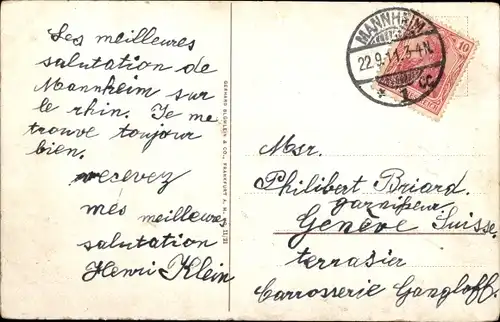 Les meilleures
salutation de
Mannheim sur
le rhin. Je me
trouve toujour
bien.
recevez
mes meilleures
salutation
Henri Klein
GEBHARD BLÜMLEIN & CO., FRANKFURT A. M.
MANNHEIM
22.9.11.3-4N.
* 1 cc
10
REICH
Msr.
Philibert Briard.
garnisseur
Genève Suisse.
terrasier
Carrosserie Gangloff.